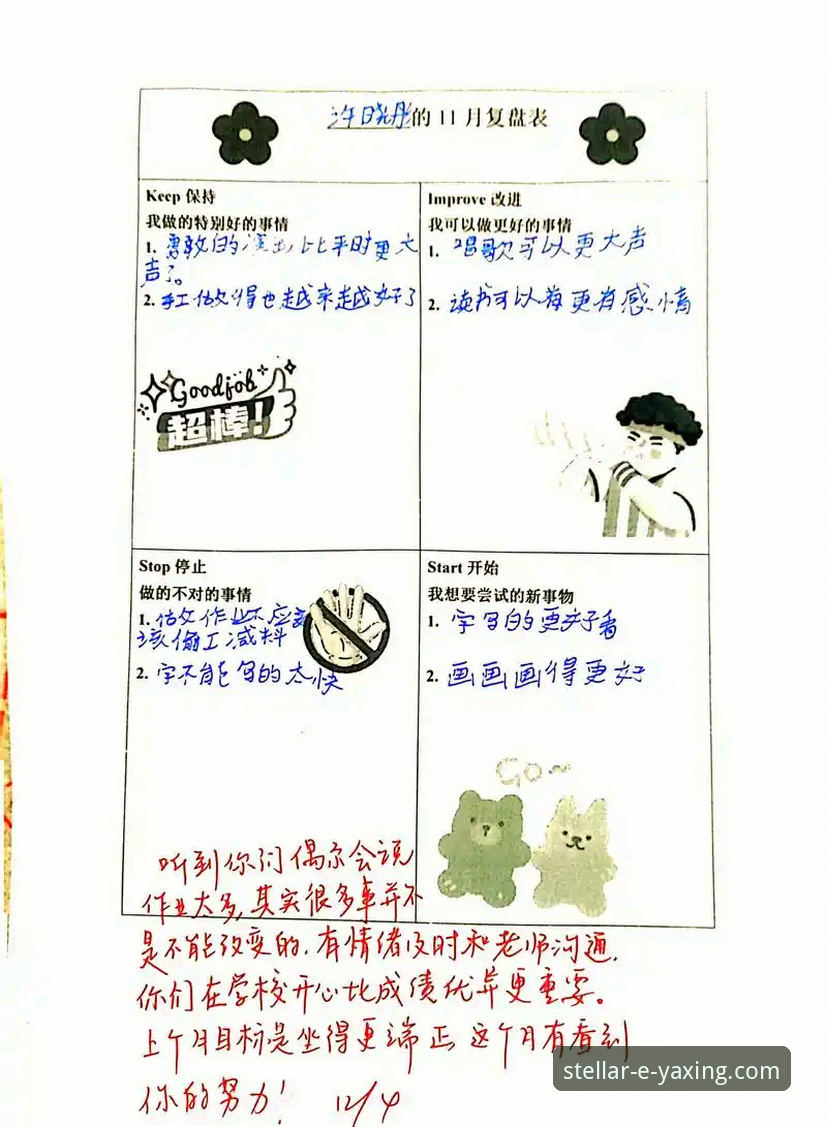 许晓彤的 11 月复盘表
Keep 保持
我做的特别好的事情
1. 勇敢的演出比平时更大
声了。
2. 手工做得也越来越好了
Goodjob
超棒!
Improve 改进
我可以做更好的事情
1. 唱歌可以更大声
2. 读书可以每更有感情
Stop 停止
做的不对的事情
1. 做作业不应
该偷工减料
2. 字不能写的太快
Start 开始
我想要尝试的新事物
1. 字写的更好看
2. 画画画得更好
Go~
听到你们偶尔会说
作业太多,其实很多事并不
是不能改变的,有情绪及时和老师沟通,
你们在学校开心比成绩优异更重要。
上个月目标是坐得更端正,这个月有看到
你的努力! 12/4
stellar-e-yaxing.com